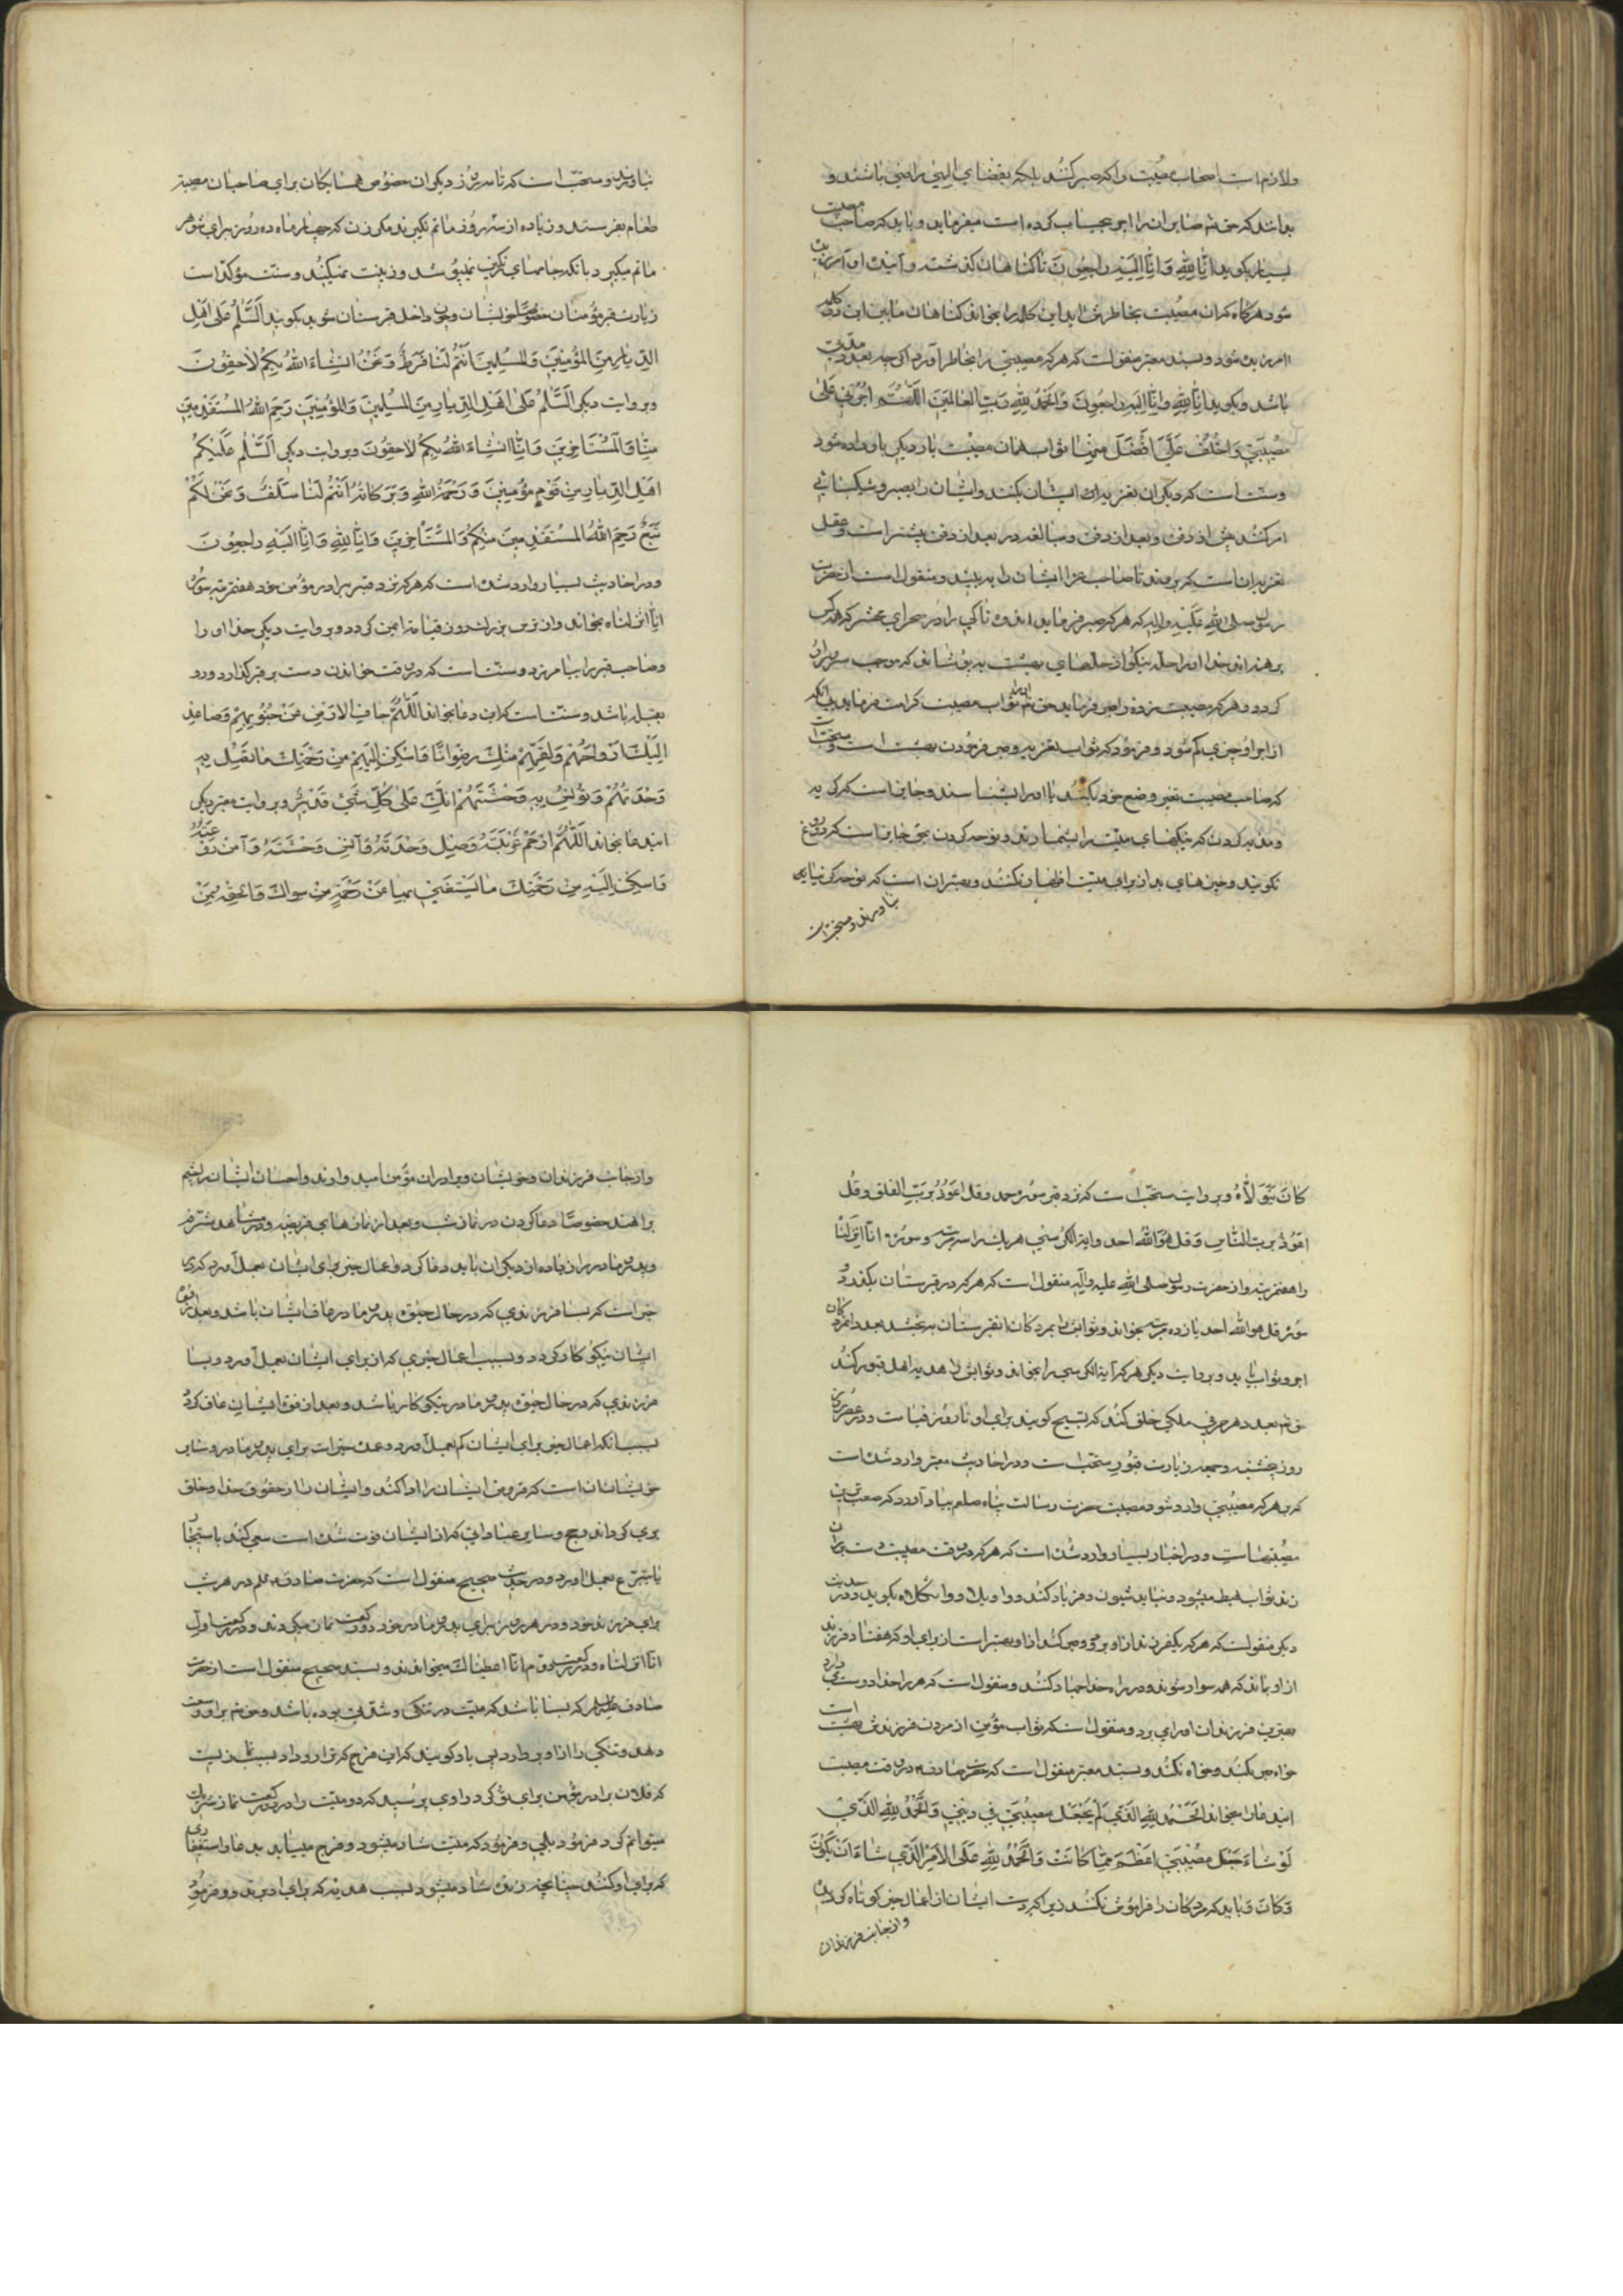 ولازم است اصحاب مصیبت را که صبر کنند بلکه بقضای الهی راضی باشند و
بدانند که حق تعالی صابران را اجر بیحساب کرده است میفرماید و باید که صاحب مصیبت
بسیار بکوید انا لله وانا الیه راجعون تا کناهان کذشته و آینده او آمرزیده
شود هرکاه که ان مصیبت بخاطرش اید این کلمه را بخواند کناهان مابین این دو کلمه
امرزیده شود و بسند معتبر منقولست که هرکه مصیبتی را بخاطر آورد اکرچه بعد از مدتی
باشد و بکوید انا لله وانا الیه راجعون والحمد لله رب العالمین اللهم اجرنی علی
مصیبتی واخلف علی افضل منها ثواب همان مصیبت بار دیکر باو داده شود
و سنت است که دیکران تعزیه ایشان بکنند و ایشان را بصبر و شکیبائی
امر کنند پیش از دفن و بعد از دفن و مبالغه در بعد از دفن بیشتر است و اقل
تعزیه ان است که بروند تا صاحب عزا ایشان را به بیند و منقول است از حضرت
رسول صلی الله علیه واله که هرکه صبر فرماید اندوهناکی را در صحرای محشر که همه کس
برهنه اند خدا او را حله نیکو از حلهای بهشت به پوشاند که موجب سرور او
کردد و هرکه مصیبت زده را صبر فرماید حق تعالی او را ثواب مصیبت کرامت فرماید بی انکه
از اجر او چیزی کم شود و فرمود که ثواب تعزیه و صبر فرمودن بهشت است و مستحب است
که صاحب مصیبت تغیر وضع خود بکند تا او را بشناسند و جایز است کریه
و ندبه کردن که نیکیهای میت را بشمارند و نوحه کردن بحق جایز است که دروغ
نکویند و چیزهای بد از برای میت اظهار نکنند و بهتر ان است که نوحه کر نیاید
بیاورند و مستحب است
بیاورند و مستحب است که تا سه روز دیکران خصوص همسایکان برای صاحبان مصیبت
طعام بفرستند و زیاده از سه روز ماتم نکیرند مکر زن که چهار ماه ده روز برای شوهر
ماتم میکیرد بانکه جامهای رنکین نمیپوشد و زینت نمیکند و سنت مؤکد است
زیارت قبر مؤمنان خصوصا خویشان و چون داخل قبرستان شوید بکوید السلام علی اهل
الدیار من المؤمنین والمسلمین انتم لنا فرط ونحن انشاء الله بکم لاحقون
و بروایت دیکر السلام علی اهل الدیار من المسلمین والمؤمنین رحم الله المستقدمین
منا والمستاخرین وانا انشاء الله بکم لاحقون و بروایت دیکر السلام علیکم
اهل الدیار من قوم مؤمنین ورحمة الله وبرکاته انتم لنا سلف ونحن لکم
تبع رحم الله المستقدمین منکم والمستاخرین وانا لله وانا الیه راجعون
و در احادیث بسیار وارد شده است که هرکه نزد قبر برادر مؤمن خود هفت مرتبه سوره
انا انزلناه بخواند از ترس بزرک روز قیامت ایمن کردد و بروایت دیکر خدا او را
و صاحب قبر را بیامرزد و سنت است که در وقت خواندن دست بر قبر کذارد و رو
بقبله باشد و سنت است که این دعا بخواند اللهم جاف الارض عن جنوبهم وصاعد
الیک ارواحهم ولقهم منک رضوانا واسکن الیهم من رحمتک ما تصل به
وحدتهم وتؤنس به وحشتهم انک علی کل شیء قدیر و بروایت معتبر دیکر
این دعا بخواند اللهم ارحم غربته وصل وحدته وآنس وحشته وآمن روعته
واسکن الیه من رحمتک ما یستغنی بها عن رحمة من سواک والحقه بمن
کان یتولاه و بروایت مستحب است که نزد قبر سوره حمد و قل اعوذ برب الفلق و قل
اعوذ برب الناس و قل هو الله احد و ایة الکرسی هر یک را سه مرتبه و سوره انا انزلنا
را هفت مرتبه و از حضرت رسول صلی الله علیه وآله منقول است که هرکه در قبرستان بکذرد و
سوره قل هو الله احد یازده مرتبه بخواند و ثوابش را بمردکان ان قبرستان به بخشد بعدد ان مردکان
اجر و ثواب یابد و بروایت دیکر هرکه آیة الکرسی را بخواند و ثوابش را هدیه اهل قبور کند
حق تعالی بعدد هر حرفی ملکی خلق کند که تسبیح کویند برای او تا روز قیامت و در عصر
روز پنجشنبه و جمعه زیارت قبور مستحب است و در احادیث معتبر وارد شده است
که بر هرکه مصیبتی وارد شود مصیبت حضرت رسالت پناه صلعم بیاد آورد که صعب ترین
مصیبتهاست و در اخبار بسیار وارد شده است که هرکه در وقت مصیبت دست بر ران
زند ثواب حبط میشود و نباید شیون و فریاد کنند و واویلا و واثکلاه بکوید و در حدیث
دیکر منقولست که هرکه یک فرزند از او بمیرد و صبر کند از او بهتر است از برای او که هفتاد فرزند
از او بماند که همه سوار شوند و در راه خدا جهاد کنند و منقول است که هرکه را خدا دوست میدارد
بهترین فرزندان او را می برد و منقول است که ثواب مؤمن از مردن فرزندش بهشت است
خواه صبر بکند و خواه نکند و بسند معتبر منقول است که حضرت صادق در وقت مصیبت
این دعا را میخواند الحمد لله الذی لم یجعل مصیبتی فی دینی والحمد لله الذی
لو شاء جعل مصیبتی اعظم مما کانت والحمد لله علی الامر الذی شاء ان یکون
وکان و باید که مردکان را فراموش نکنند زیرا که دست ایشان از اعمال خیر کوتاه کردیده
و از جانب فرزندان
و از جانب فرزندان و خویشان و برادران مؤمن امید وارند و احسان ایشان را چشم
براهند خصوصا دعا کردن در نماز شب و بعد از نمازهای فریضه و در مشاهد مشرفه
و پدر و مادر را زیاده از دیکران باید دعا کرد و اعمال خیر برای ایشان بعمل آورد
خبر است که بسا فرزندی که در حال حیوة پدر و مادر عاق ایشان باشد و بعد از فوت
ایشان نیکوکار کردد و بسبب اعمال خیری که از برای ایشان بعمل آورد و بسا
فرزندی که در حال حیوة پدر و مادر نیکوکار باشد و بعد از فوت ایشان عاق کردد
بسبب انکه اعمال خیر برای ایشان کم بعمل آورد و عمده خیرات برای پدر و مادر و سایر
خویشان ان است که قروض ایشان را ادا کند و ایشان را از حقوق خدا و خلق
بری کرداند و حج و سایر عباداتی که از ایشان فوت شده است سعی کنند باستیجار
یا بتبرع بعمل اورد و در حدیث صحیح منقول است که حضرت صادق علیه السلم در هر شب
برای فرزند خود و در هر روز برای پدر و مادر خود دو رکعت نماز میکردند و در رکعت اول
انا انزلناه و در رکعت دوم انا اعطیناک میخواندند و بسند صحیح منقول است از حضرت
صادق علیه السلم که بسا باشد که میت در تنکی و شدتی بوده باشد و حق تعالی براو وسعت
دهد و تنکی را از او بردارد پس باو کویند که این فرج که ترا رو داد بسبب نمازیست
که فلان برادر مؤمن برای تو کرد راوی پرسید که دو میت را در دو رکعت نماز شریک
میتوانم کرد فرمود بلی و فرمود که میت شاد میشود و فرج مییابد بدعا و استغفاری
که برای او کنند چنانچه زنده شاد میشود بسبب هدیه که برای او برند و فرمود